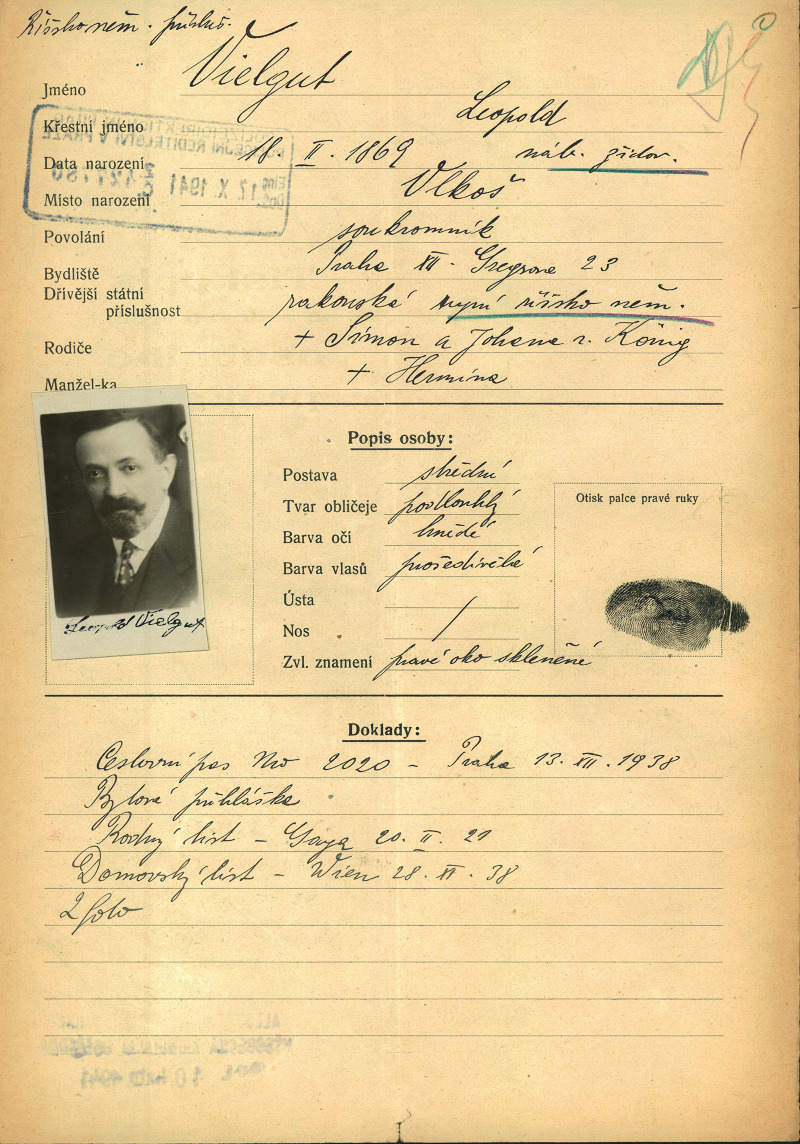 Říšsko něm. přísluš.
Jméno Vielgut
Křestní jméno Leopold
Data narození 18. II. 1869 náb. židov.
Místo narození Vlkoš
Povolání soukromník
Bydliště Praha XII. Gregrova 23
Dřívější státní
příslušnost rakouská nyní říšsko něm.
Rodiče + Simon a Johana r. König
Manžel-ka + Hermina
POLICEJNÍ ŘEDITELSTVÍ V PRAZE
17. X. 1941
Leopold Vielgut
Popis osoby:
Postava střední
Tvar obličeje podlouhlý
Barva očí hnědé
Barva vlasů prošedivělé
Ústa
Nos /
Zvl. znamení pravé oko skleněné
Otisk palce pravé ruky
Doklady:
Cestovní pas No 2020 – Praha 13. XII. 1938
Bytová přihláška
Rodný list – Gaya 20. II. 21
Domovský list – Wien 28. XI. 38
2 foto